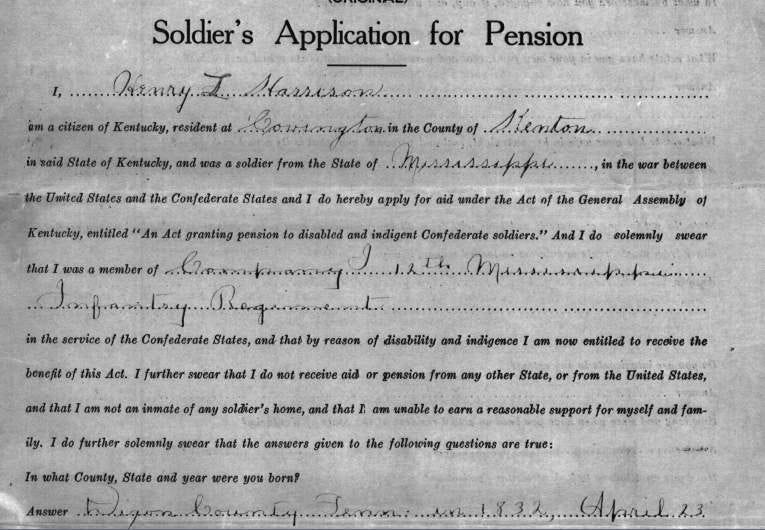 (ORIGINAL)
Soldier's Application for Pension
I, Henry L Harrison
am a citizen of Kentucky, resident at Covington in the County of Kenton
in said State of Kentucky, and was a soldier from the State of Mississippi, in the war between
the United States and the Confederate States and I do hereby apply for aid under the Act of the General Assembly of
Kentucky, entitled "An Act granting pension to disabled and indigent Confederate soldiers." And I do solemnly swear
that I was a member of Company I 12th Mississippi
Infantry Regiment
in the service of the Confederate States, and that by reason of disability and indigence I am now entitled to receive the
benefit of this Act. I further swear that I do not receive aid or pension from any other State, or from the United States,
and that I am not an inmate of any soldier's home, and that I am unable to earn a reasonable support for myself and fam-
ily. I do further solemnly swear that the answers given to the following questions are true:
In what County, State and year were you born?
Answer Dixon County Tenn. in 1832, April 23